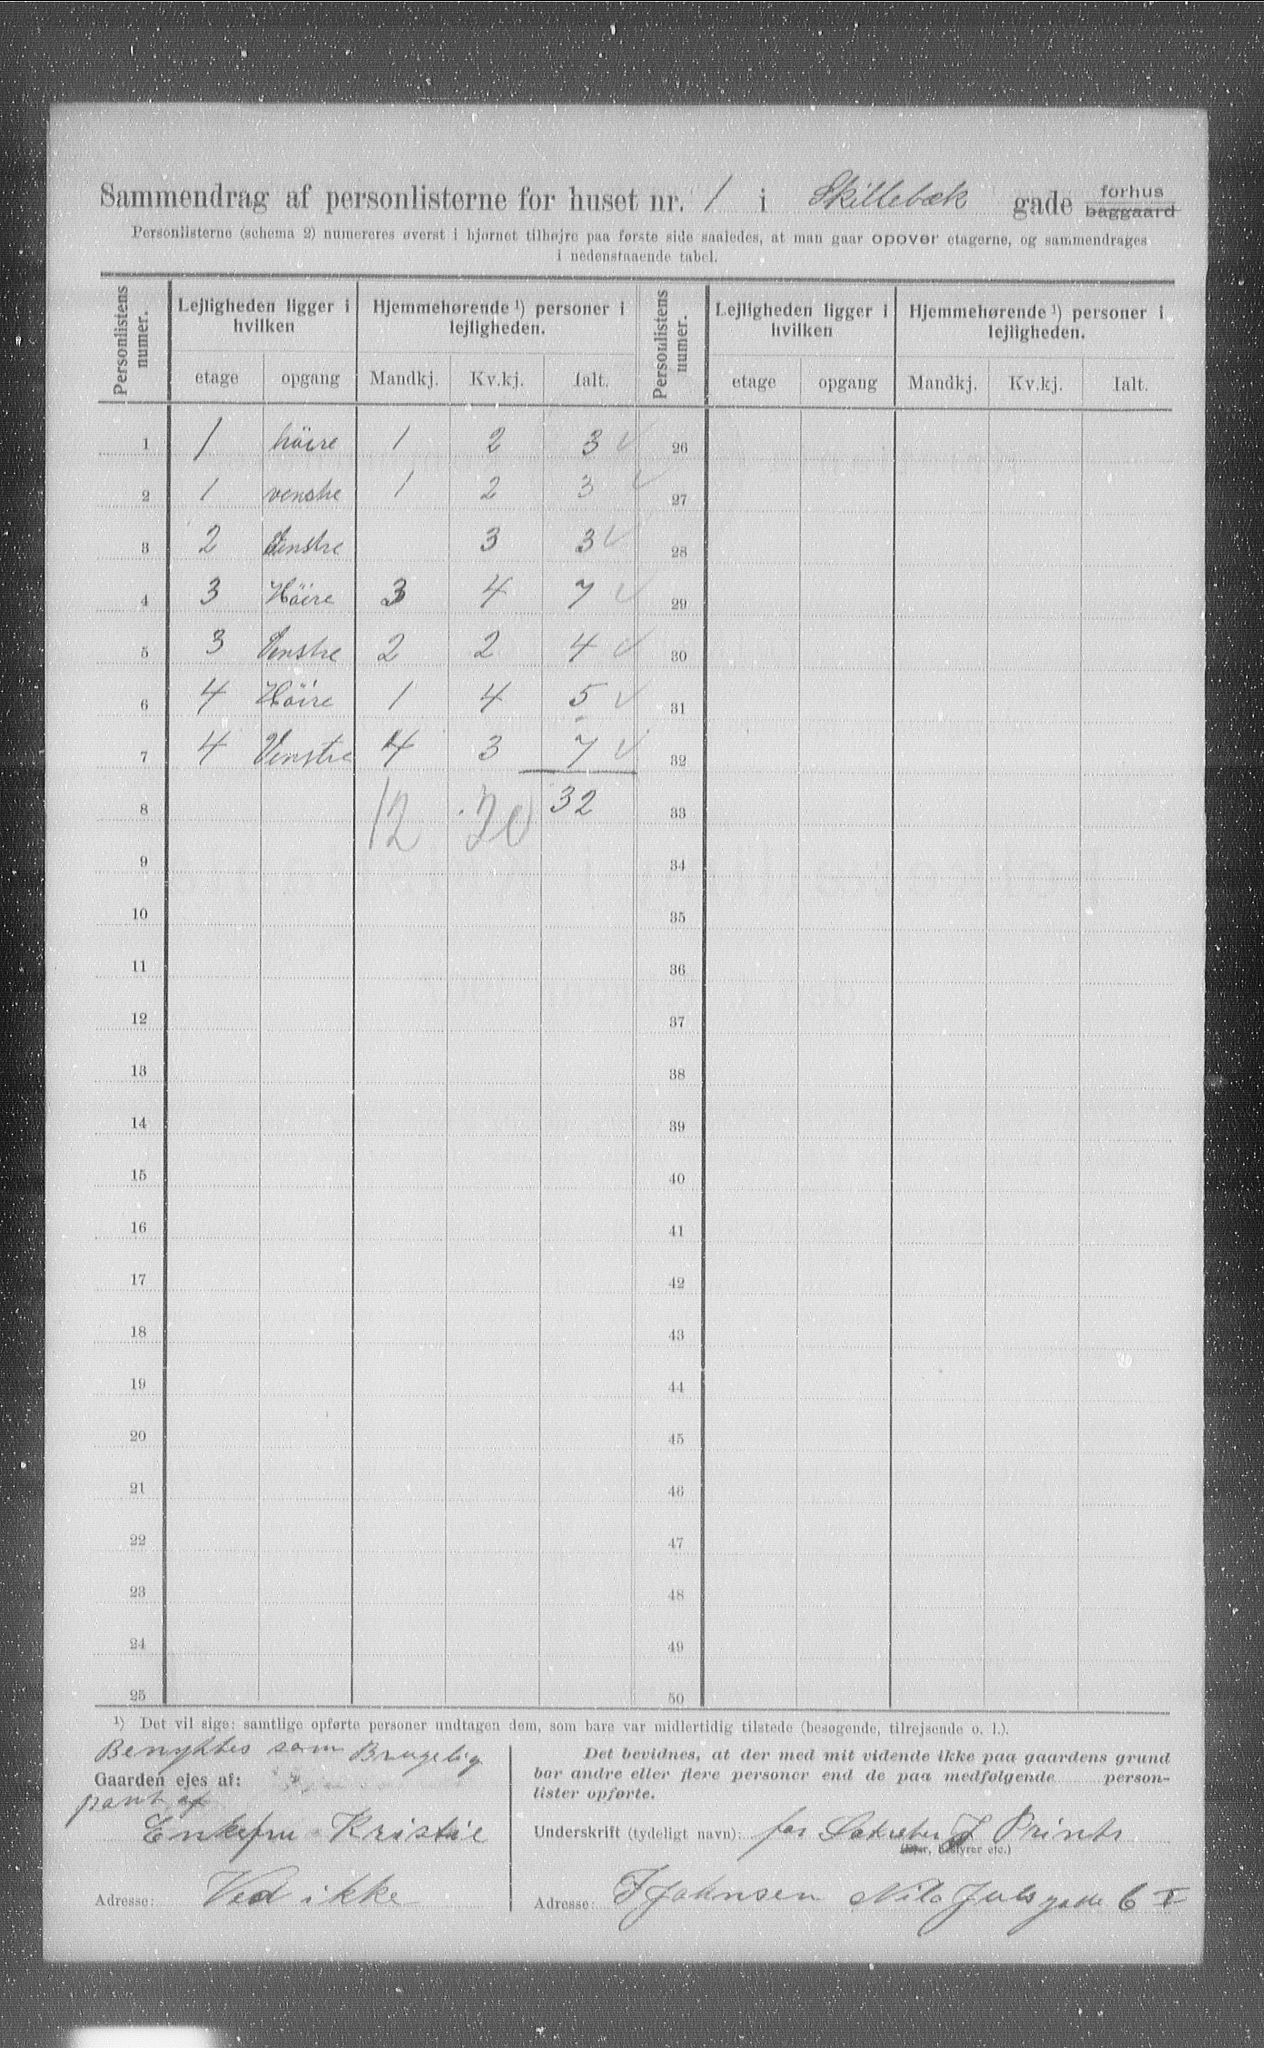 Sammendrag af personlisterne for huset nr. 1 i Skillebæk gade forhus baggaard
Personlisterne (schema 2) numereres øverst i hjørnet tilhøjre paa første side saaledes, at man gaar opover etagerne, og sammendrages
i nedenstaaende tabel.
Personlistens numer. Lejligheden ligger i hvilken Hjemmehørende ¹) personer i lejligheden. Personlistens numer. Lejligheden ligger i hvilken Hjemmehørende ¹) personer i lejligheden.
etage opgang Mandkj. Kv.kj. Ialt. etage opgang Mandkj. Kv.kj. Ialt.
1 1 höire 1 2 3 ✓ 26
2 1 venstre 1 2 3 ✓ 27
3 2 Venstre 3 3 ✓ 28
4 3 Höire 3 4 7 ✓ 29
5 3 Venstre 2 2 4 ✓ 30
6 4 Höire 1 4 5 ✓ 31
7 4 Venstre 4 3 7 ✓ 32
8 12 20 32 33
9 34
10 35
11 36
12 37
13 38
14 39
15 40
16 41
17 42
18 43
19 44
20 45
21 46
22 47
23 48
24 49
25 50
¹) Det vil sige: samtlige opførte personer undtagen dem, som bare var midlertidig tilstede (besøgende, tilrejsende o. l.).
Benyttes som Brugelig
Gaarden ejes af:
pant af
Enkefru Kristie
Adresse: Ved ikke
Det bevidnes, at der med mit vidende ikke paa gaardens grund
bor andre eller flere personer end de paa medfølgende person-
lister opførte.
Underskrift (tydeligt navn): for J Prints
(Ejer, bestyrer etc.)
Adresse: J Johnsen Nils Juls gade 6 I